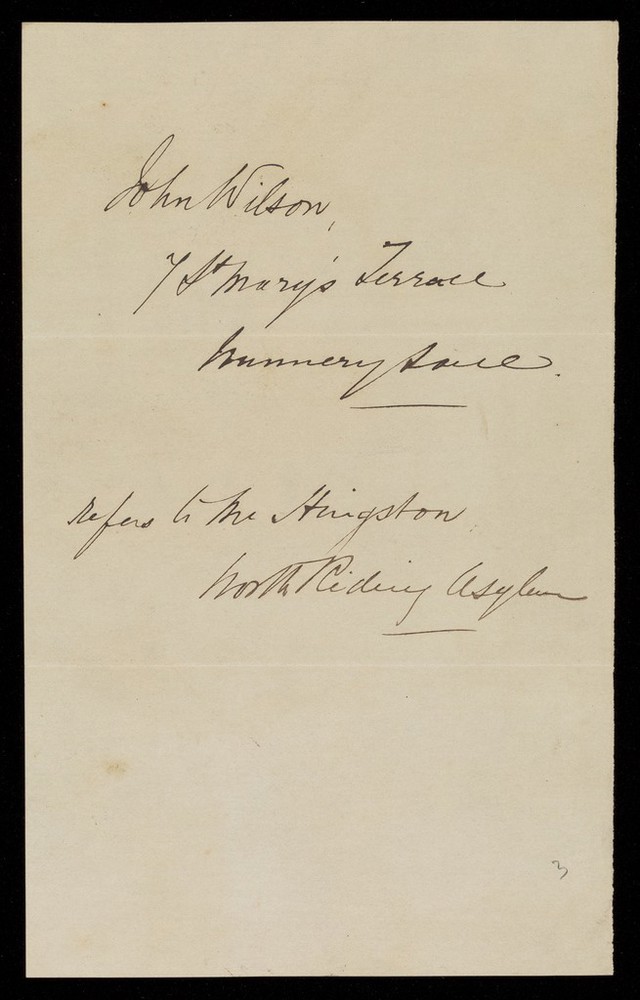 John Wilson,
7 St Mary's Terrace
Nunnery Lane.
Refers to Mr Hingston
North Riding Asylum
3